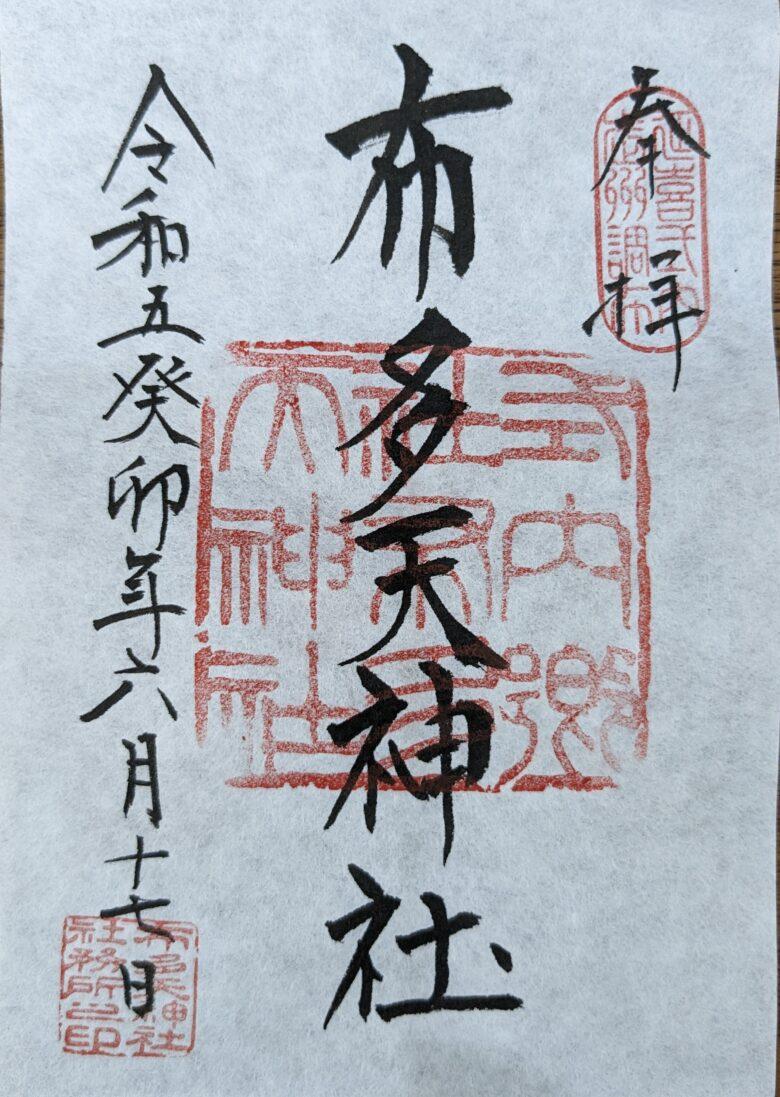 奉拝
延喜式内
武州調布
布多天神社
式内郷
社布多
天神社
令和五癸卯年六月十七日
布多天神社
社務所之印